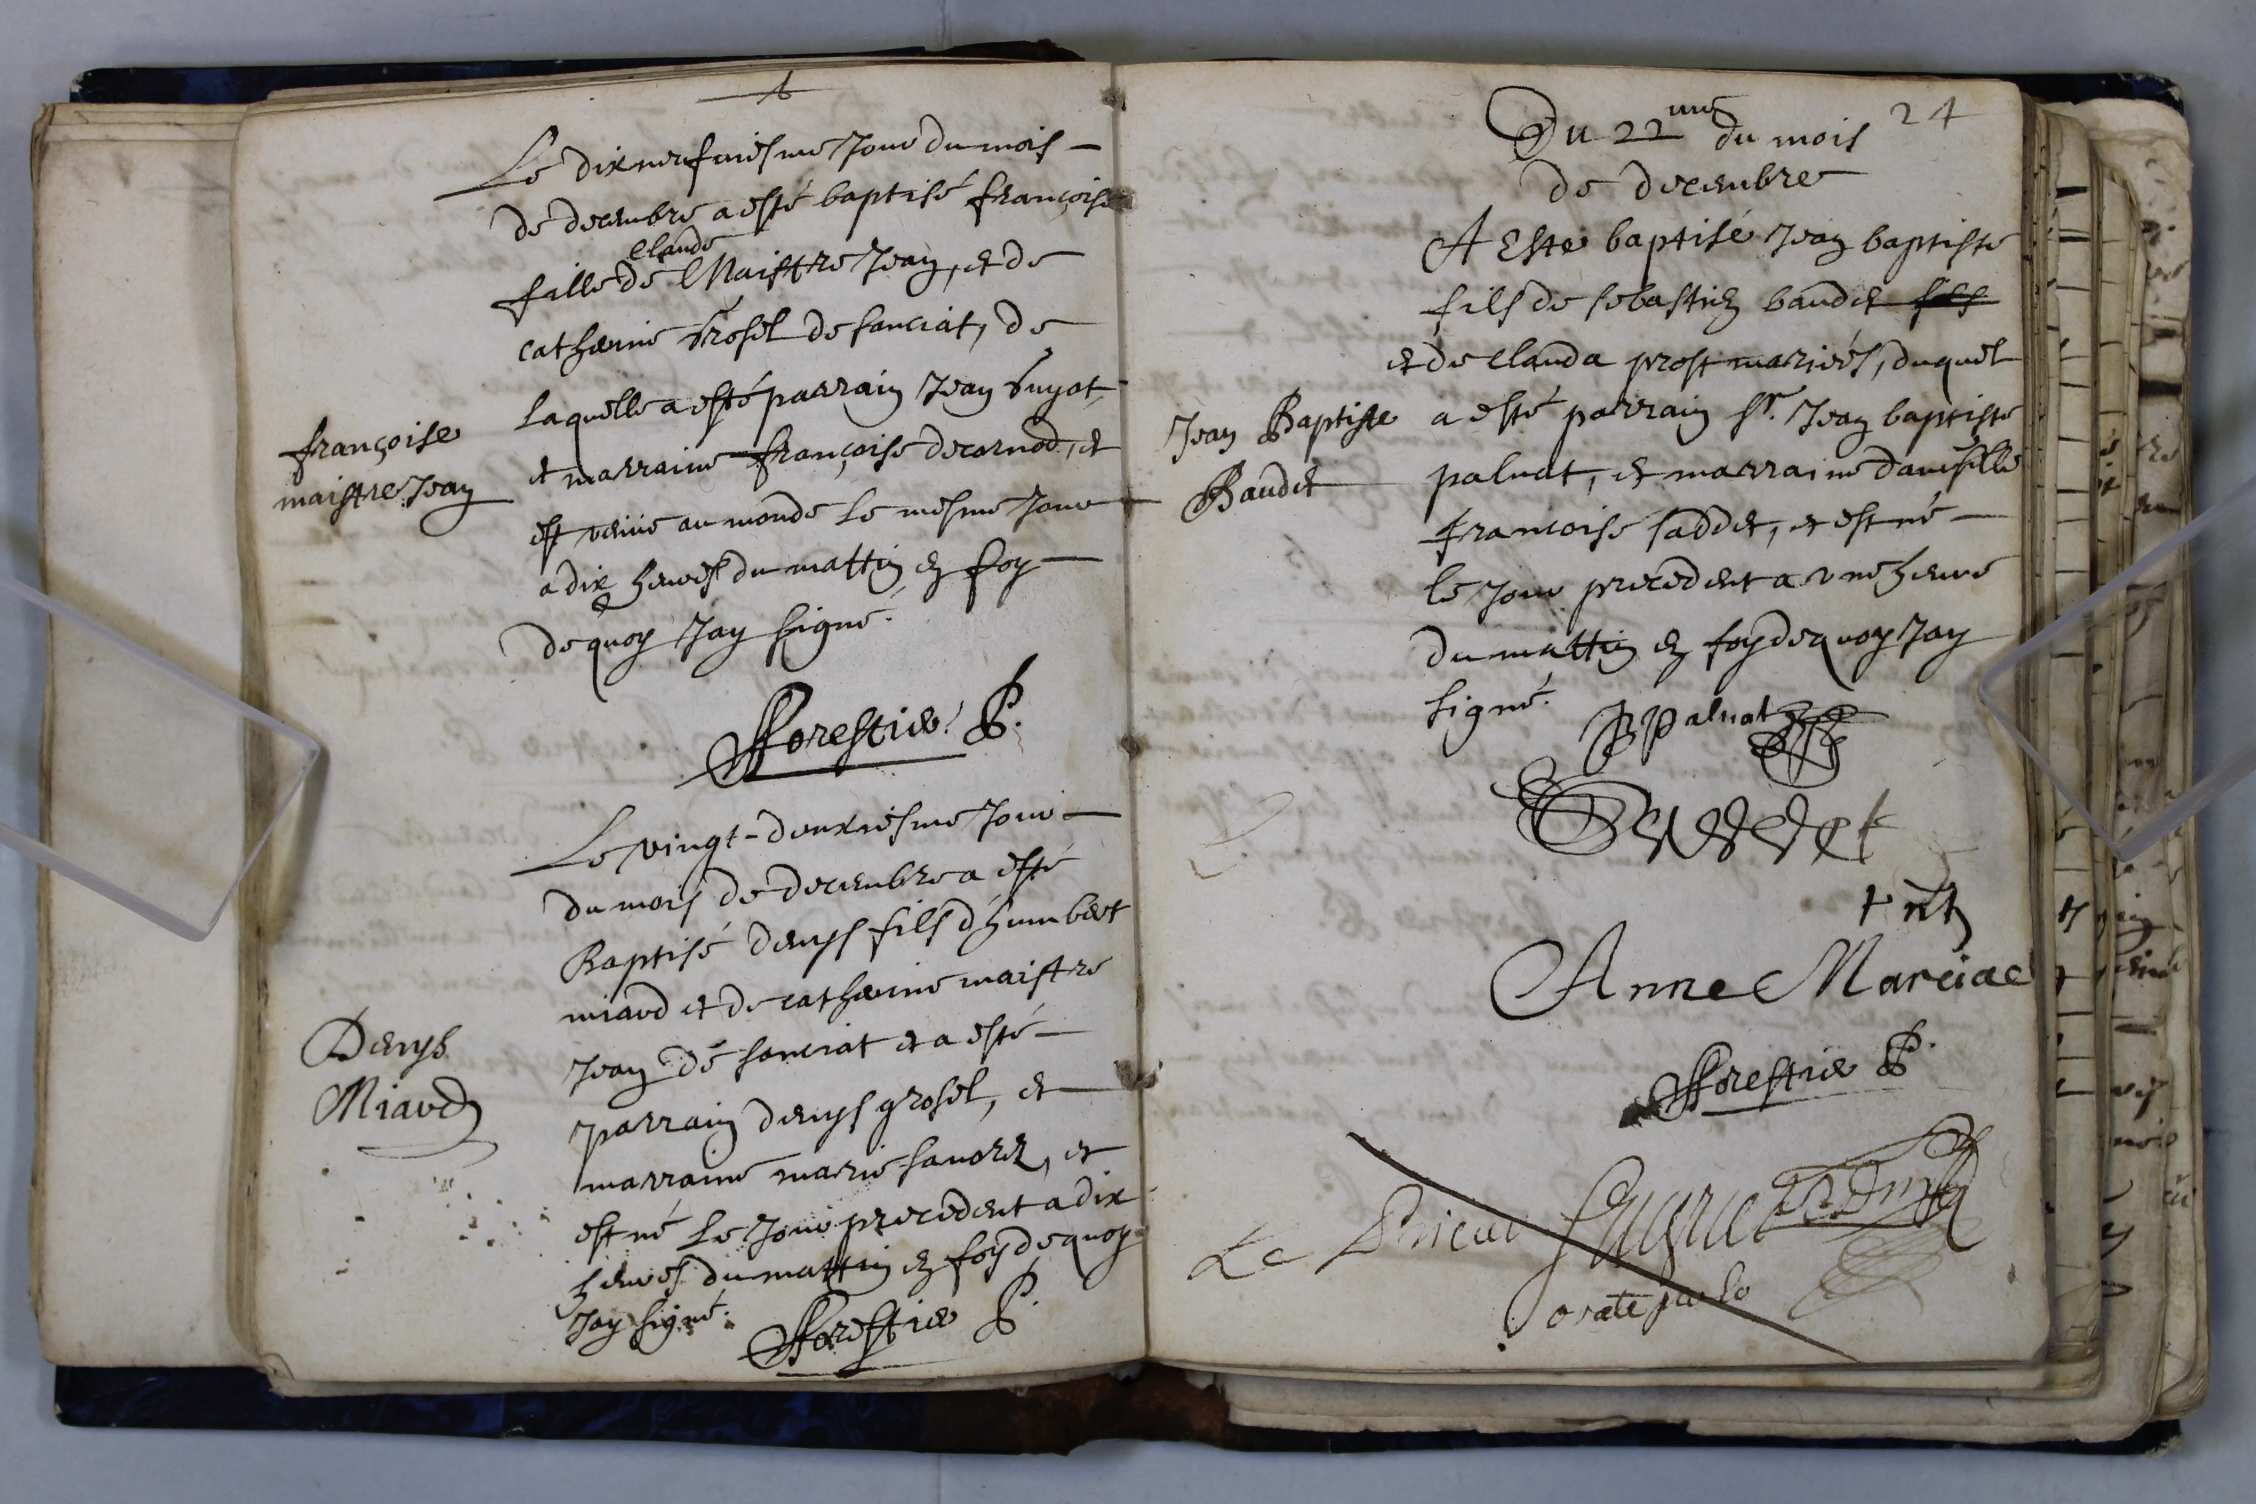 Le dixneufviesme Jour du mois
de decembre a esté baptisé françoise
Claude
fille de Maistre Jean, et de
catherine Grosel de sanciat, de
laquelle a esté parrain Jean Guyot
françoise
et marraine françoise decornod, et
maistre Jean
est venüe au monde le mesme Jour
a dix heures du mattin en foy
de quoy Jay signé.
fforestier P.
Le vingt-deuxiesme Jour
du mois de decembre a esté
Baptisé denys fils d'humbert
miaud et de catherine maistre
Denys
Jean de sanciat et a esté
Miaud
parrain denys grosel, et
marraine marie
est né le Jour precedent a dix
heures du mattin en foy de quoy
Jay signé.
fforestier P.
24
Du 22me du mois
de decembre
A Este baptisé Jean baptiste
fils de sebastien baudet fils
et de Clauda prost mariées, duquel
Jean Baptiste
a esté parrain Sr. Jean baptiste
Baudet
paluat, et marraine damoiselle
francoise saddet, et est né
le Jour precedent a une heure
du mattin en foy de quoy Jay
signé.
JB paluat
Anne Marciac
fforestier P.
Le Prieur
orate pro eo